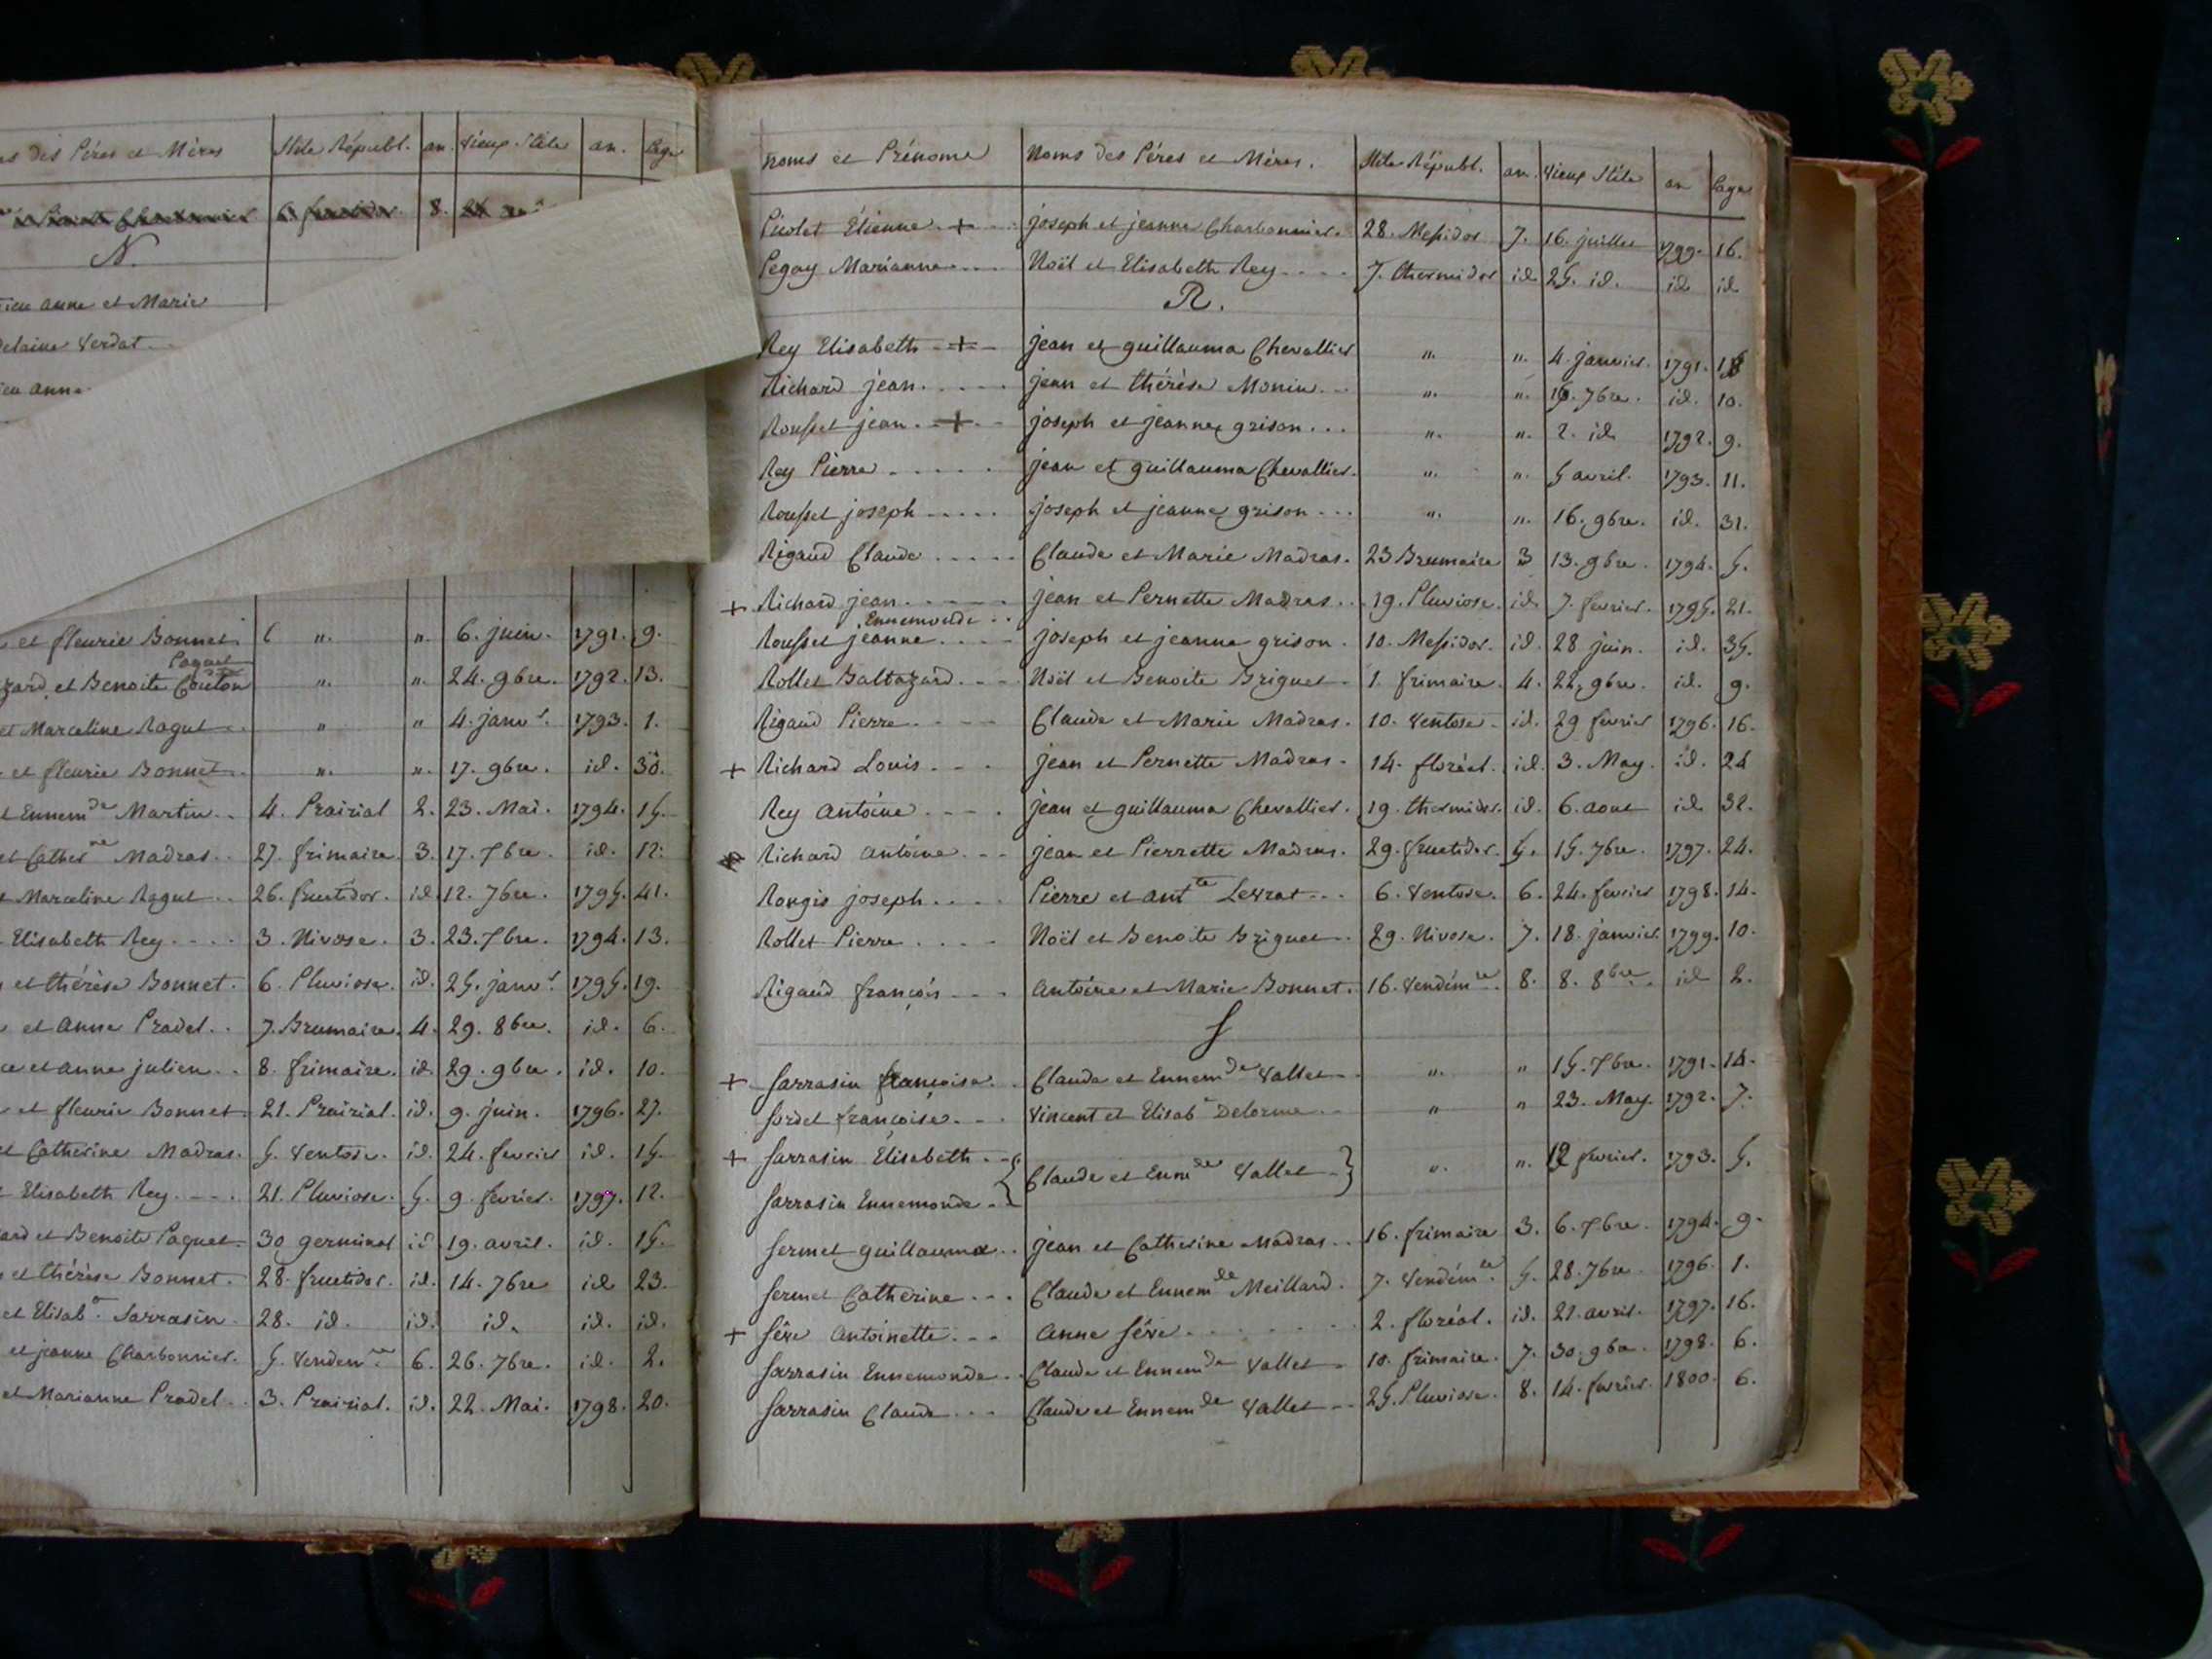 des Péres et Méres | Stile Républ. | an. | Vieux Stile | an. | Page
8.
N.
anne et Marie
Verdat
anne
et fleurie Bonnet | " | " | 6. juin. | 1791. | 9.
Paquet
et Benoite Couton | " | " | 24. 9bre. | 1792. | 13.
et Marceline Ragut | " | " | 4. janvr. | 1793. | 1.
et fleurie Bonnet | " | " | 17. 9bre. | id. | 30.
Ennemde Martin | 4. Prairial | 2. | 23. Mai. | 1794. | 15.
et Catherne Madras | 27. frimaire. | 3. | 17. Xbre. | id. | 12.
Marceline Ragut | 26. fructidor. | id. | 12. 7bre. | 1795. | 41.
Elisabeth Rey | 3. Nivose. | 3. | 23. Xbre. | 1794. | 13.
et thérèse Bonnet. | 6. Pluviose. | id. | 25. janvr. | 1795. | 19.
et anne Pradel | 7. Brumaire. | 4. | 29. 8bre. | id. | 6.
et anne julien | 8. frimaire. | id. | 29. 9bre. | id. | 10.
et fleurie Bonnet | 21. Prairial. | id. | 9. juin. | 1796. | 27.
et Catherine Madras. | 5. Ventose. | id. | 24. fevrier | id. | 15.
Elisabeth Rey | 21. Pluviose. | 5. | 9. fevrier. | 1797. | 12.
et Benoite Paquet | 30 germinal | id. | 19. avril. | id. | 15.
et thérèse Bonnet. | 28. fructidor. | id. | 14. 7bre | id | 23.
et Elisabe. Sarrasin | 28. id. | id. | id. | id. | id.
et jeanne Charbonnier. | 5. Vendemre | 6. | 26. 7bre. | id. | 2.
et Marianne Pradel | 3. Prairial. | id. | 22. Mai. | 1798. | 20.
noms et Prénoms | Noms des Péres et Méres. | Stile Républ. | an. | Vieux Stile | an | Page
Piolet Étienne + | joseph et jeanne Charbonnier. | 28. Messidor | 7. | 16. juillet | 1799. | 16.
Pegay Marianne | Noël et Elisabeth Rey | 7. thermidor | id | 25. id. | id | id
R.
Rey Elisabeth + | jean et guillauma Chevallier | " | " | 4. janvier. | 1791. | 1
Richard jean | jean et thérèse Monin | " | " | 16. 7bre. | id. | 10.
Rousset jean + | joseph et jeanne grison | " | " | 2. id | 1792. | 9.
Rey Pierre | jean et guillauma Chevallier. | " | " | 5 avril. | 1793. | 11.
Rousset joseph | joseph et jeanne grison | " | " | 16. 9bre. | id. | 31.
Rigaud Claude | Claude et Marie Madras. | 23 Brumaire | 3 | 13. 9bre. | 1794. | 5.
+ Richard jean | jean et Pernette Madras | 19. Pluviose. | id. | 7. fevrier. | 1795. | 21.
Ennemonde
Rousset jeanne | joseph et jeanne grison. | 10. Messidor. | id. | 28 juin. | id. | 35.
Rollet Baltazard | Noël et Benoite Briguet | 1. frimaire. | 4. | 22. 9bre. | id. | 9.
Rigaud Pierre | Claude et Marie Madras. | 10. Ventose | id. | 29 fevrier | 1796. | 16.
+ Richard Louis | jean et Pernette Madras. | 14. floréal. | id. | 3. May. | id. | 24
Rey antoine | jean et guillauma Chevallier. | 19. thermidor. | id. | 6. aout | id | 32.
Richard antoine | jean et Pierrette Madras. | 29. fructidor. | 5. | 15. 7bre. | 1797. | 24.
Rongis joseph | Pierre et antte Levrat | 6. Ventose. | 6. | 24. fevrier | 1798. | 14.
Rollet Pierre | Noël et Benoite Briguet | 29. Nivose. | 7. | 18. janvier | 1799. | 10.
Rigaud françois | antoine et Marie Bonnet. | 16. Vendémre. | 8. | 8. 8bre. | id | 2.
S
+ Sarrasin françoise | Claude et Ennemde Vallet | " | " | 15. Xbre. | 1791. | 14.
Sordet françoise | Vincent et Elisabe Delorme | " | " | 23. May. | 1792. | 7.
+ Sarrasin Elisabeth { Claude et Ennde Vallet } | " | " | 12 fevrier. | 1793. | 5.
Sarrasin Ennemonde
Sermet guillauma | jean et Catherine Madras | 16. frimaire | 3. | 6. Xbre. | 1794. | 9.
Sermet Catherine | Claude et Ennemde Meillard. | 7. Vendémre. | 5. | 28. 7bre | 1796. | 1.
+ Séve antoinette | anne Séve | 2. floréal. | id. | 21. avril. | 1797. | 16.
Sarrasin Ennemonde | Claude et Ennemde Vallet | 10. frimaire. | 7. | 30. 9bre. | 1798. | 6.
Sarrasin Claude | Claude et Ennemde Vallet | 25. Pluviose. | 8. | 14. fevrier. | 1800. | 6.